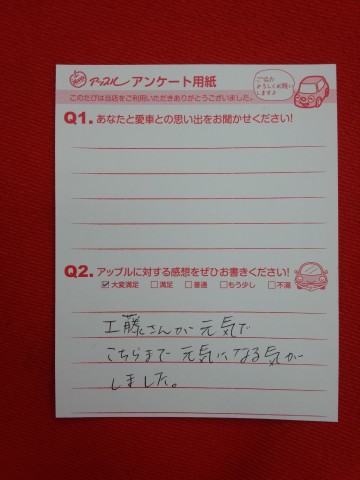 アップル アンケート用紙
このたびは当店をご利用いただきありがとうございました。
ご協力
よろしくお願い
します♪
Q1. あなたと愛車との思い出をお聞かせください!
Q2. アップルに対する感想をぜひお書きください!
☑大変満足 □満足 □普通 □もう少し □不満
工藤さんが 元気で
こちらまで 元気になる気が
しました。